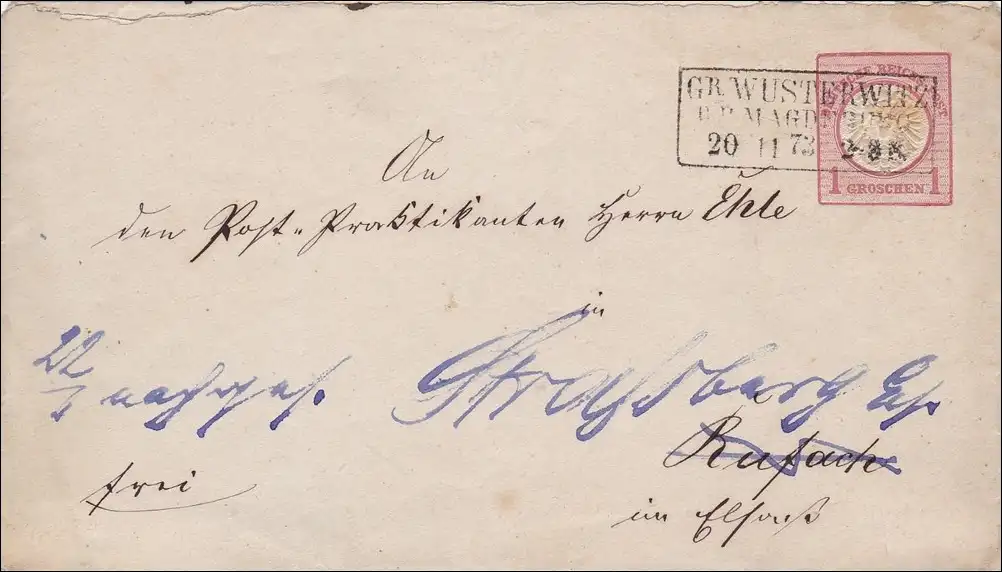 GR. WUSTERWITZ
R.B. MAGDEBURG
20 11 73 2-3 N
DEUTSCHE REICHS-POST
1 GROSCHEN 1
An
den Post-Praktikanten Herrn Ehle
in
22 nachges. Straßburg E/s.
Rufach
frei
im Elsaß